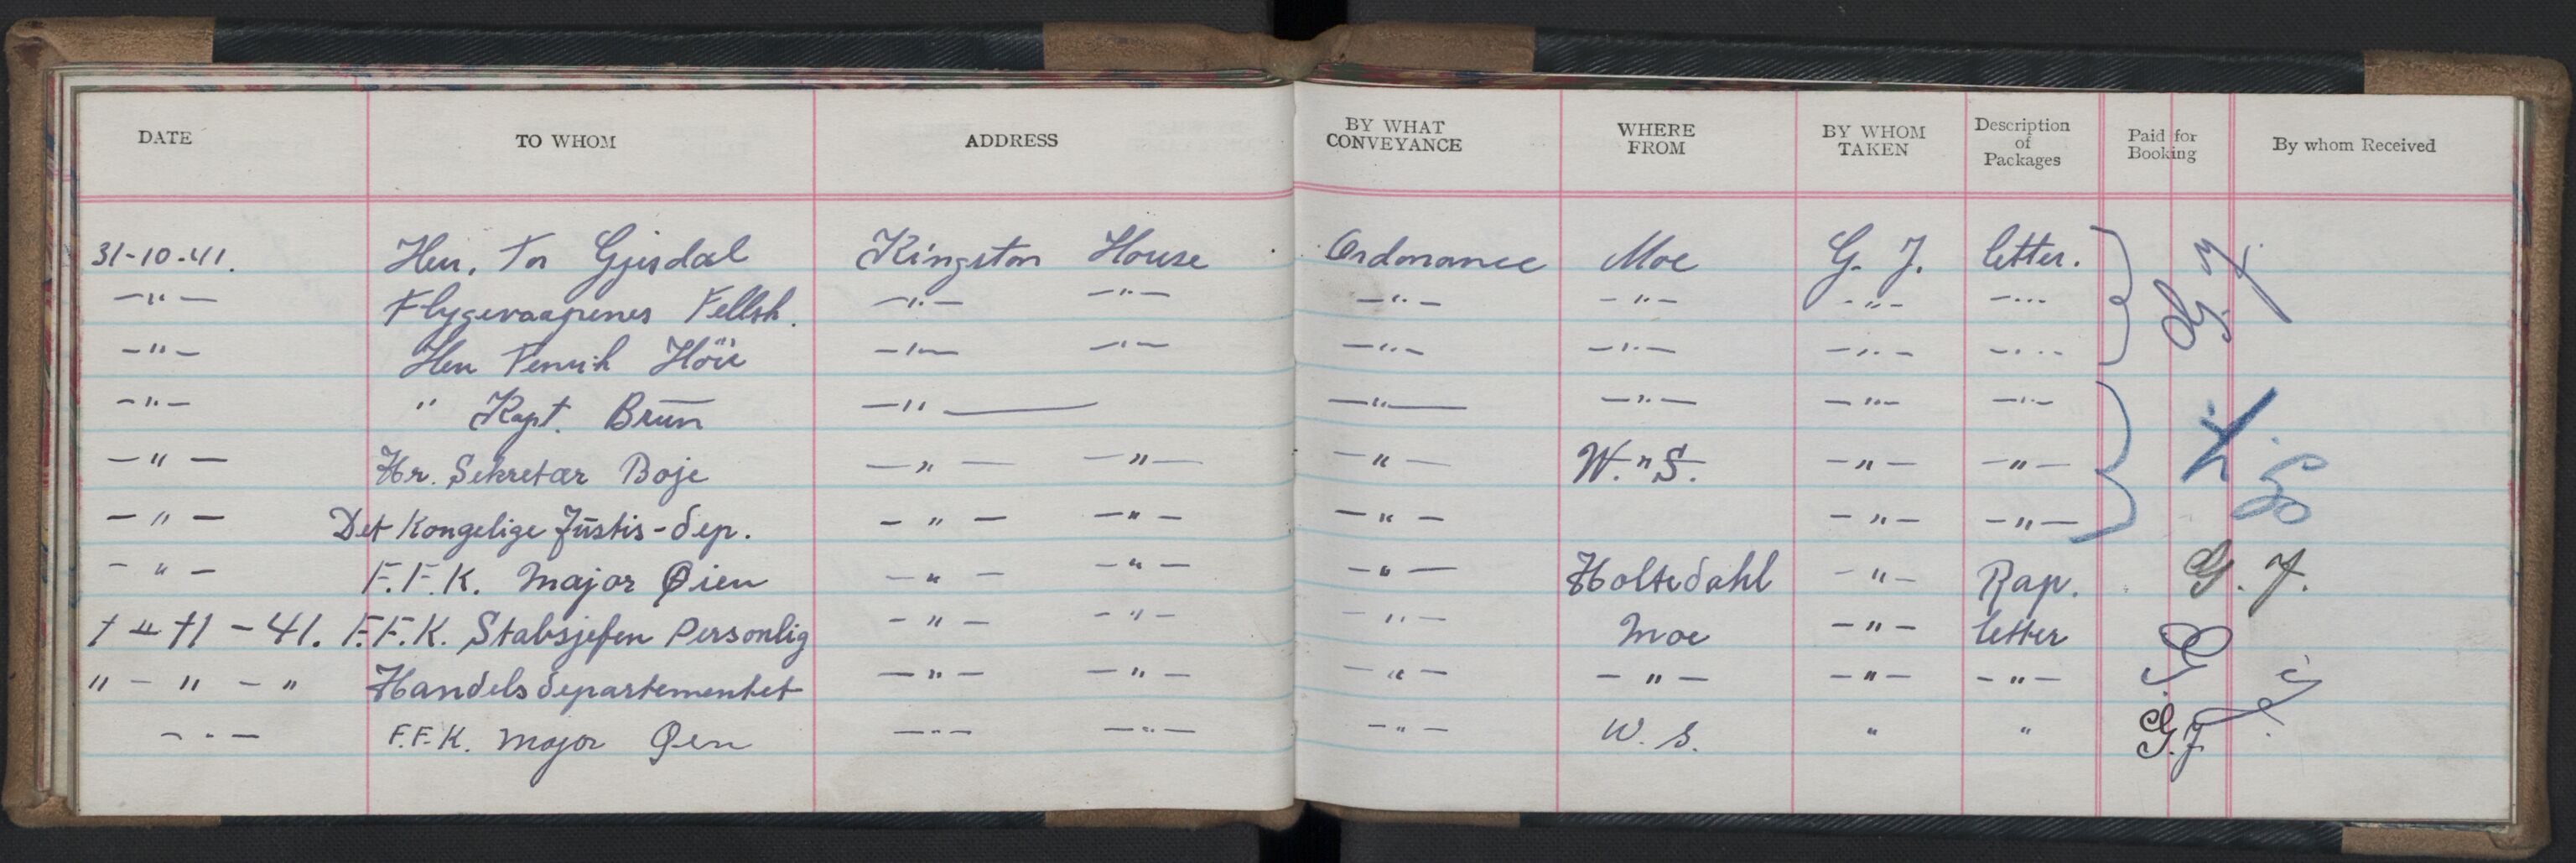 DATE TO WHOM ADDRESS BY WHAT CONVEYANCE WHERE FROM BY WHOM TAKEN Description of Packages Paid for Booking By whom Received
31-10-41. Herr. Tor Gjesdal Kingston House Ordonance Moe G. J. letter. G. J.
—"— Flygevaapenes Fellsh. —"— —"— —"— —"— —"— —"—
—"— Herr Fenrik Höie —"— —"— —"— —"— —"— —"—
—"— " Kapt. Brun —"— —"— —"— —"— —"—
—"— Hr. Sekretær Boje —"— —"— —"— W."S. —"— —"—
—"— Det Kongelige Justis-dep. —"— —"— —"— —"— —"—
—"— F.F.K. Major Øien —"— —"— —"— Holtedahl —"— Rap. G. J.
1-11-41. F.F.K. Stabsjefen Personlig —"— —"— —"— Moe —"— letter
" — " — " Handelsdepartementet —"— —"— —"— —"— —"— —"—
—"— F.F.K. Major Øen —"— —"— —"— W. S. " " G.J